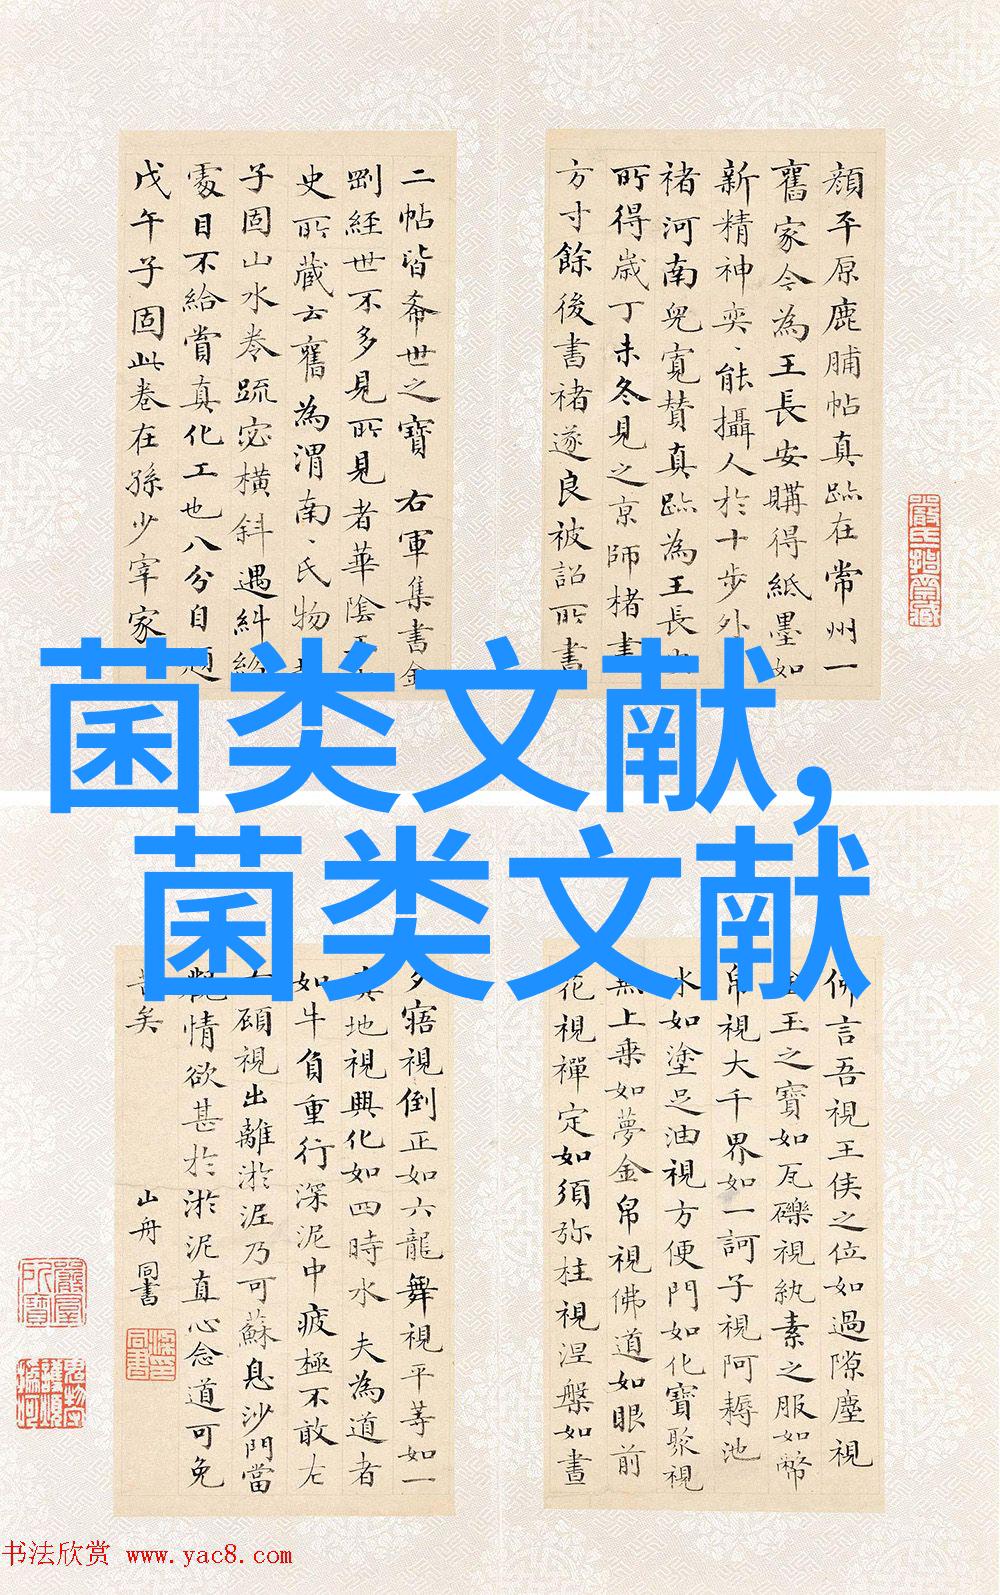 顔平原鹿脯帖真跡在常州一
舊家今為王長安購得紙墨如
新精神奕〻能攝人於十步外
褚河南兒寬贊真跡為王長
所得歲丁未冬見之京師楮書
方寸餘後書褚遂良被詔所書
二帖皆希世之寶右軍集書金
剛經世不多見所見者華陰王
史所藏云舊為渭南〻氏物
子固山水卷疏密橫斜遇糾紛
處目不給賞真化工也八分自題
戊午子固此卷在孫少宰家
菌类文献,
菌类文献
佛言吾視王侯之位如過隙塵視
金玉之寶如瓦礫視紈素之服如幣
帛視大千界如一訶子視阿耨池
水如塗足油視方便門如化寶聚視
無上乘如夢金帛視佛道如眼前
花視禪定如須弥柱視涅槃如晝
夕寤視倒正如六龍舞視平等如一
真地視興化如四時水 夫為道者
如牛負重行深泥中疲極不敢左
右顧視出離淤泥乃可蘇息沙門當
觀情欲甚於淤泥直心念道可免
苦矣
山舟 同書
书法欣赏 www.yac8.com